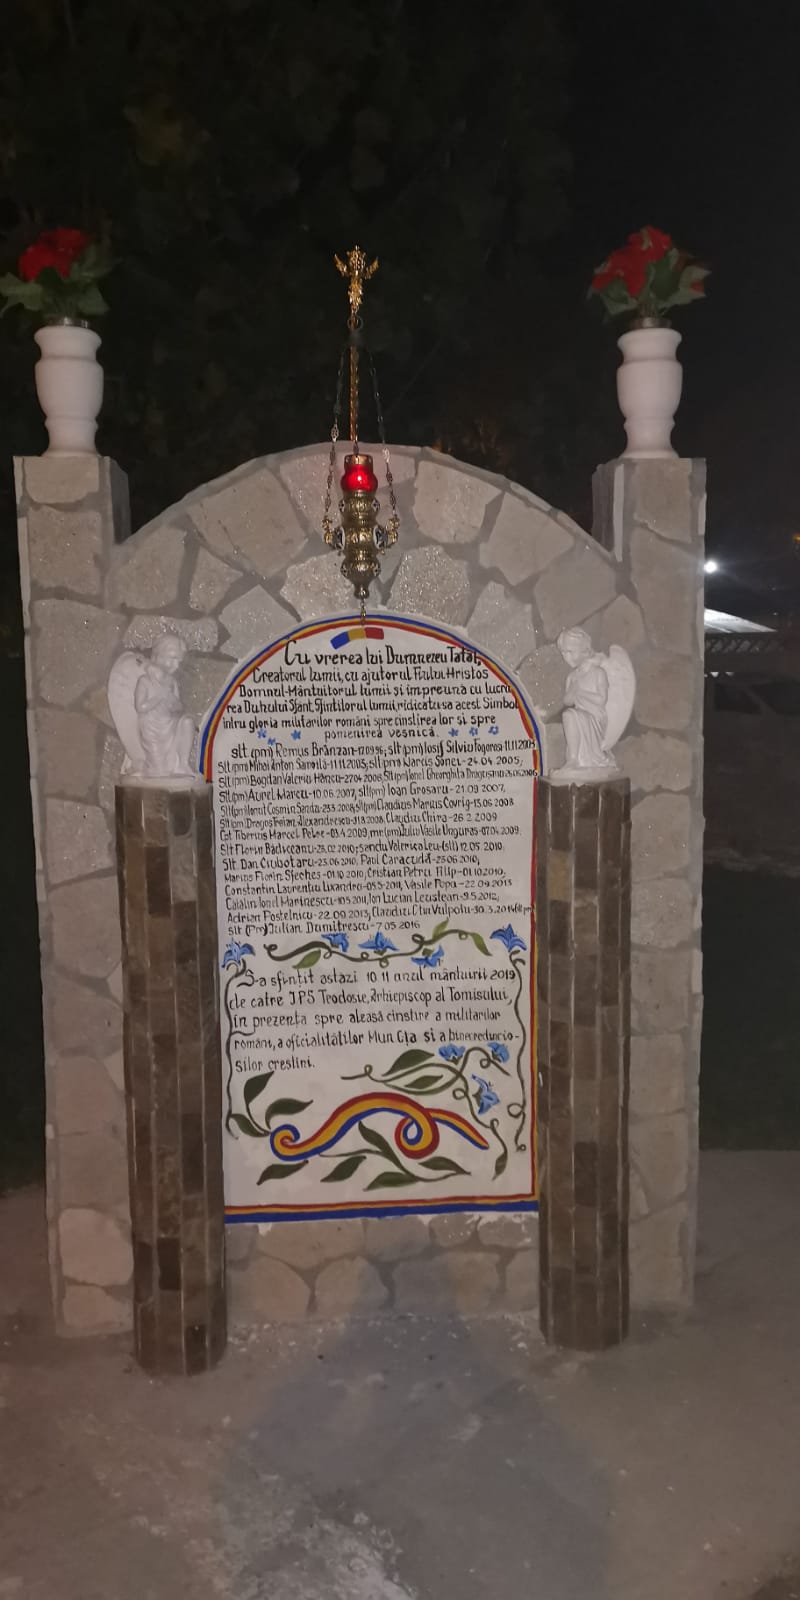 Cu vrerea lui Dumnezeu Tatăl,
Creatorul lumii, cu ajutorul Fiului Hristos
Domnul-Mântuitorul lumii și împreună cu lucra
rea Duhului Sfânt, Sfintilorul lumii, ridicatu-sa acest Simbol
întru gloria militarilor români spre cinstirea lor și spre
pomenirea veșnică.
slt (pm) Remus Brânzan-17.09.96; slt(pm) Iosif Silviu Fogorasi 11.11.2005
Slt(pm) Mihai Anton Samoilă-11.11.2005, sll(pm Narcis Șonei-24.04.2005;
Slt(pm) Bogdan Valeriu Hâncu-27.04.2006, Slt(pm) Ionel Gheorghita Dragusanu
Slt(pm) Aurel Marcu-10.06.2007, sll(pm) Ioan Grosaru-21.09.2007,
Slt(pm) Ionut Cosmin Sandu-23.3.2008, slt(pm) Claudius Marius Covrig-13.06.2008
Slt(pm) Dragos Traian Alexandrescu-31.8.2008, Claudiu Chira-26.2.2009
Cpt Tiberius Marcel Petre-03.4.2009, mr.(pm) Iuliu Vasile Unguras-07.04.2009.
Slt Florin Bădiceanu-23.02.2010; Sandu Valerica Leu-(sll) 12.05.2010;
Slt. Dan Ciobotaru-23.06.2010, Paul Caracudă-23.06.2010,
Marius Florin Sfeches-01.10.2010, Cristian Petru Filip-01.10.2010;
Constantin Laurentiu Lixandru-05.5-2011, Vasile Popa-22.09.2013
Catalin Ionel Marinescu-10.5 2011, Ion Lucian Leustean-9.5.2012;
Adrian Postelnicu-22.09.2013, Claudiu Ctin Vulpoiu-30.3.2016
slt (Pm) Iulian Dumitrescu-7.05.2016
S-a sfintit astazi 10 11 anul mântuirii 2019
de catre IPS Teodosie, Arhiepiscop al Tomisului,
în prezența spre aleasă cinstire a militarilor
români, a oficialităților Mun Cța și a binecredincio-
silor creslini.